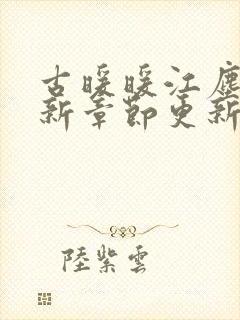 古暖暖江塵
新章節更新
陸紫雲